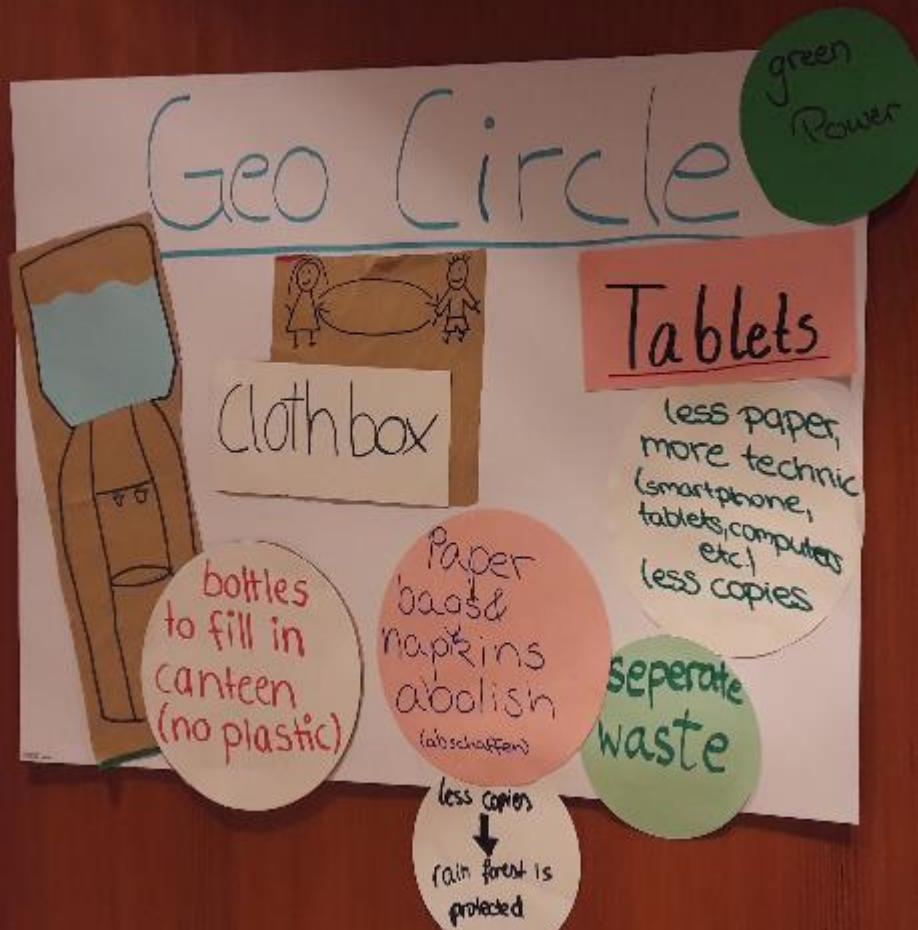 green
Power
Geo Circle
Tablets
Clothbox
less paper,
more technic
(smartphone,
tablets, computers
etc.)
less copies
bottles
to fill in
canteen
(no plastic)
Paper
bags &
napkins
abolish
(abschaffen)
seperate
waste
less copies
rain forest is
protected